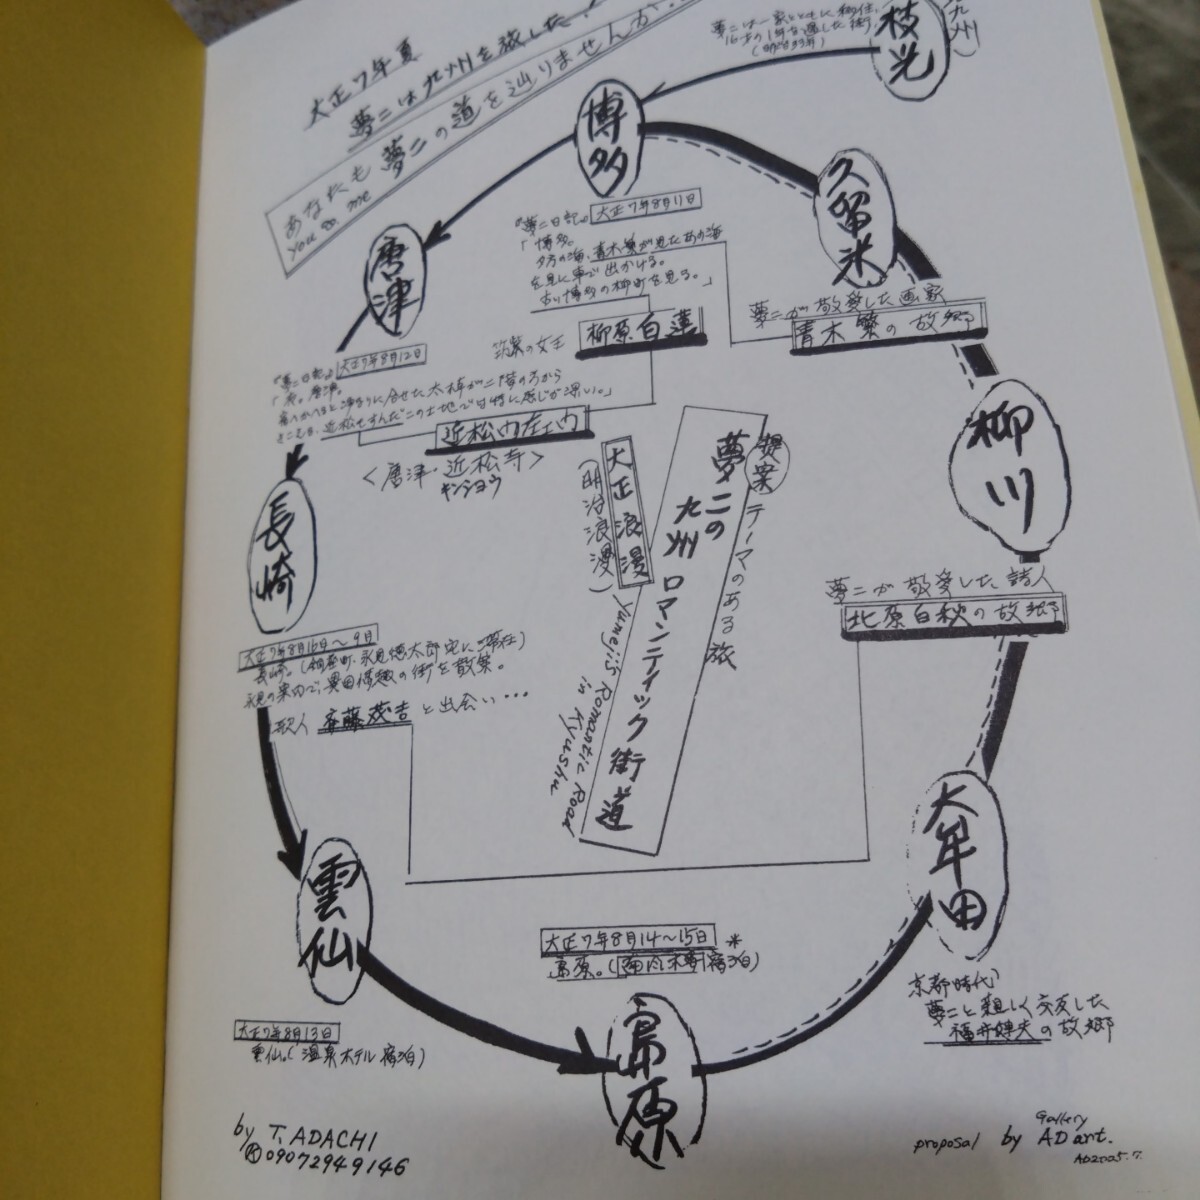 大正7年夏
夢二は九州を旅した
あなたも夢二の道を辿りませんか
you so me
枝光
九州)
夢二は一家とともに移住、
16才の1年を過した街
(明治33年)
博多
『夢二日記』大正7年8月11日
「博多。
夕方の海、青木繁が見たあの海
を見に車で出かける。
古い博多の柳町を見る。」
久留米
夢二が敬愛した画家
青木繁の故郷
唐津
『夢二日記』大正7年8月12日
「夜。唐津。
近松もすんだこの土地では特に感じが深い。」
筑紫の女王 柳原白蓮
近松門左エ門
<唐津・近松寺>
キンショウ
柳川
夢二が敬愛した詩人
北原白秋の故郷
提案 テーマのある旅
夢二の九州ロマンティック街道
大正浪漫
(明治浪漫)
Yumeji's Romantic Road
in Kyushu
長崎
大正7年8月16日~9月
長崎。(銅座町、永見徳太郎宅に滞在)
永見の案内で、異国情趣の街を散策。
歌人 斎藤茂吉と出会い・・・
雲仙
大正7年8月13日
雲仙。(温泉ホテル宿泊)
大正7年8月14~15日
島原。
宿泊)
島原
大牟田
京都時代
夢二と親しく交友した
の故郷
by T. ADACHI
09072949146
proposal by Gallery AD art.
AD2005.7.